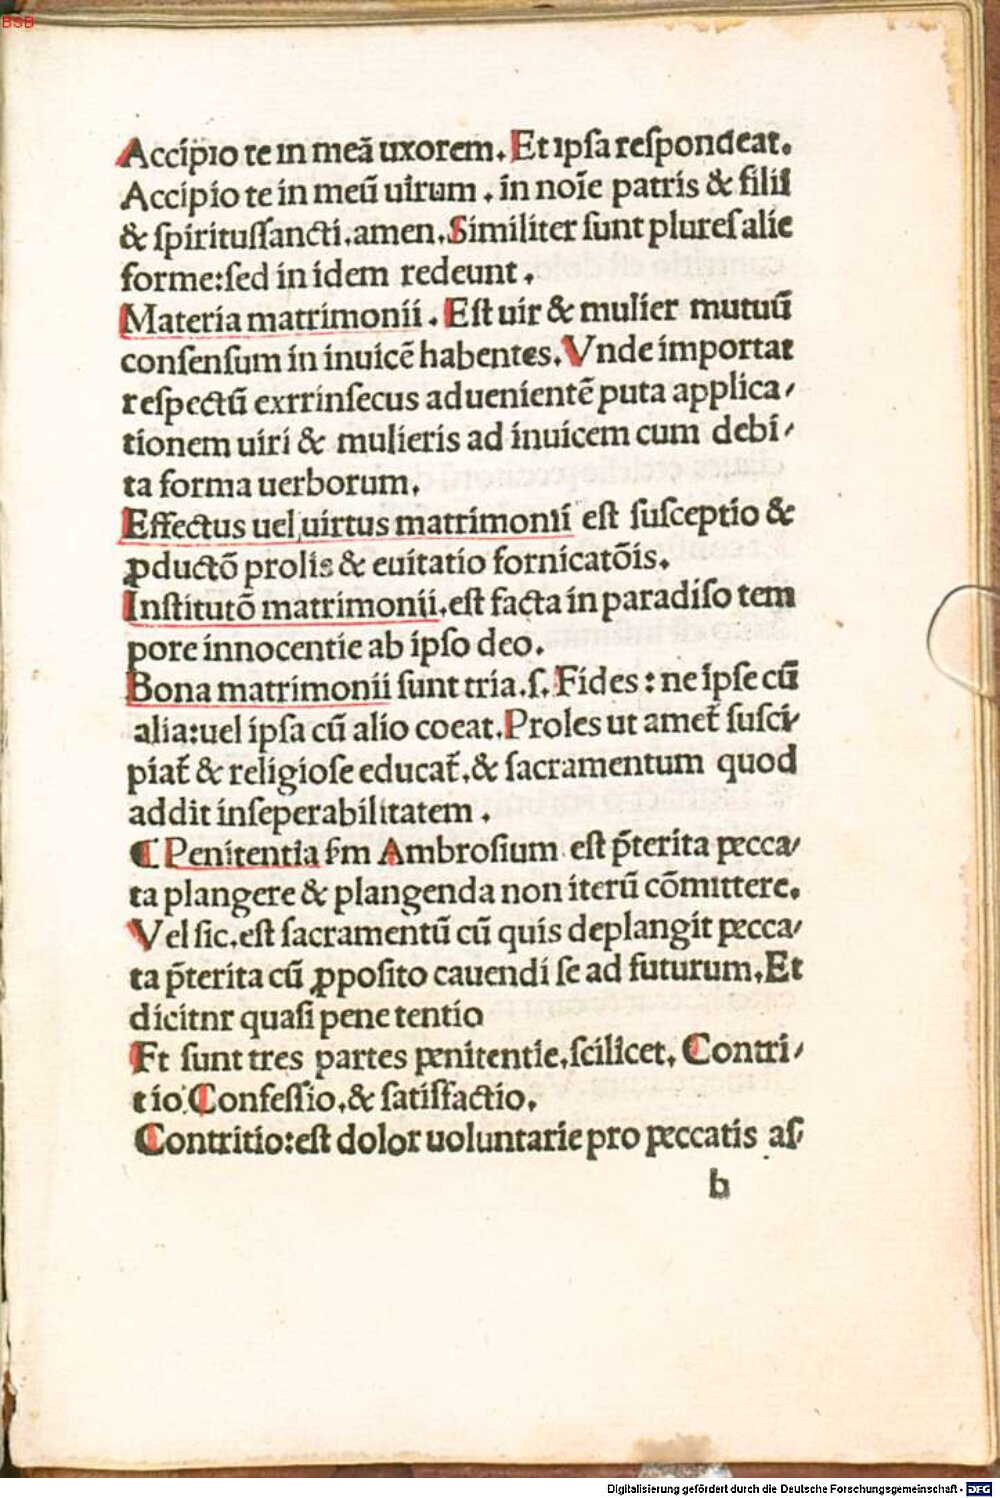 BSB
Accipio te in meā uxorem. Et ipſa reſpondeat.
Accipio te in meū uirum . in noīe patris & filii
& ſpirituſſancti.amen.Similiter ſunt plureſ alie
forme:ſed in idem redeunt .
Materia matrimonii . Eſt uir & mulier mutuū
conſenſum in inuicē habentes.Vnde importat
reſpectū exrrinſecus aduenientē puta applica⸗
tionem uiri & mulieris ad inuicem cum debi⸗
ta forma uerborum.
Effectus uel uirtus matrimonii eſt ſuſceptio &
ꝓductō prolis & euitatio fornicatōis.
Inſtitutō matrimonii.eſt facta in paradiſo tem
pore innocentie ab ipſo deo.
Bona matrimonii ſunt tria.ſ. Fides : ne ipſe cū
alia:uel ipſa cū alio coeat.Proles ut amet̄ ſuſci⸗
piat̄ & religioſe educat̄.& ſacramentum quod
addit inſeperabilitatem .
¶ Penitentia ſm Ambroſium eſt p̄terita pecca⸗
ta plangere & plangenda non iterū cōmittere.
Vel ſic.eſt ſacramentū cū quis deplangit pecca⸗
ta p̄terita cū ꝓpoſito cauendi ſe ad futurum.Et
dicitnr quaſi pene tentio
Et ſunt tres partes penitentie.ſcilicet. Contri⸗
tio.Confeſſio.& ſatiſfactio.
Contritio:eſt dolor uoluntarie pro peccatis aſ⸗
b
Digitalisierung gefördert durch die Deutsche Forschungsgemeinschaft - DFG